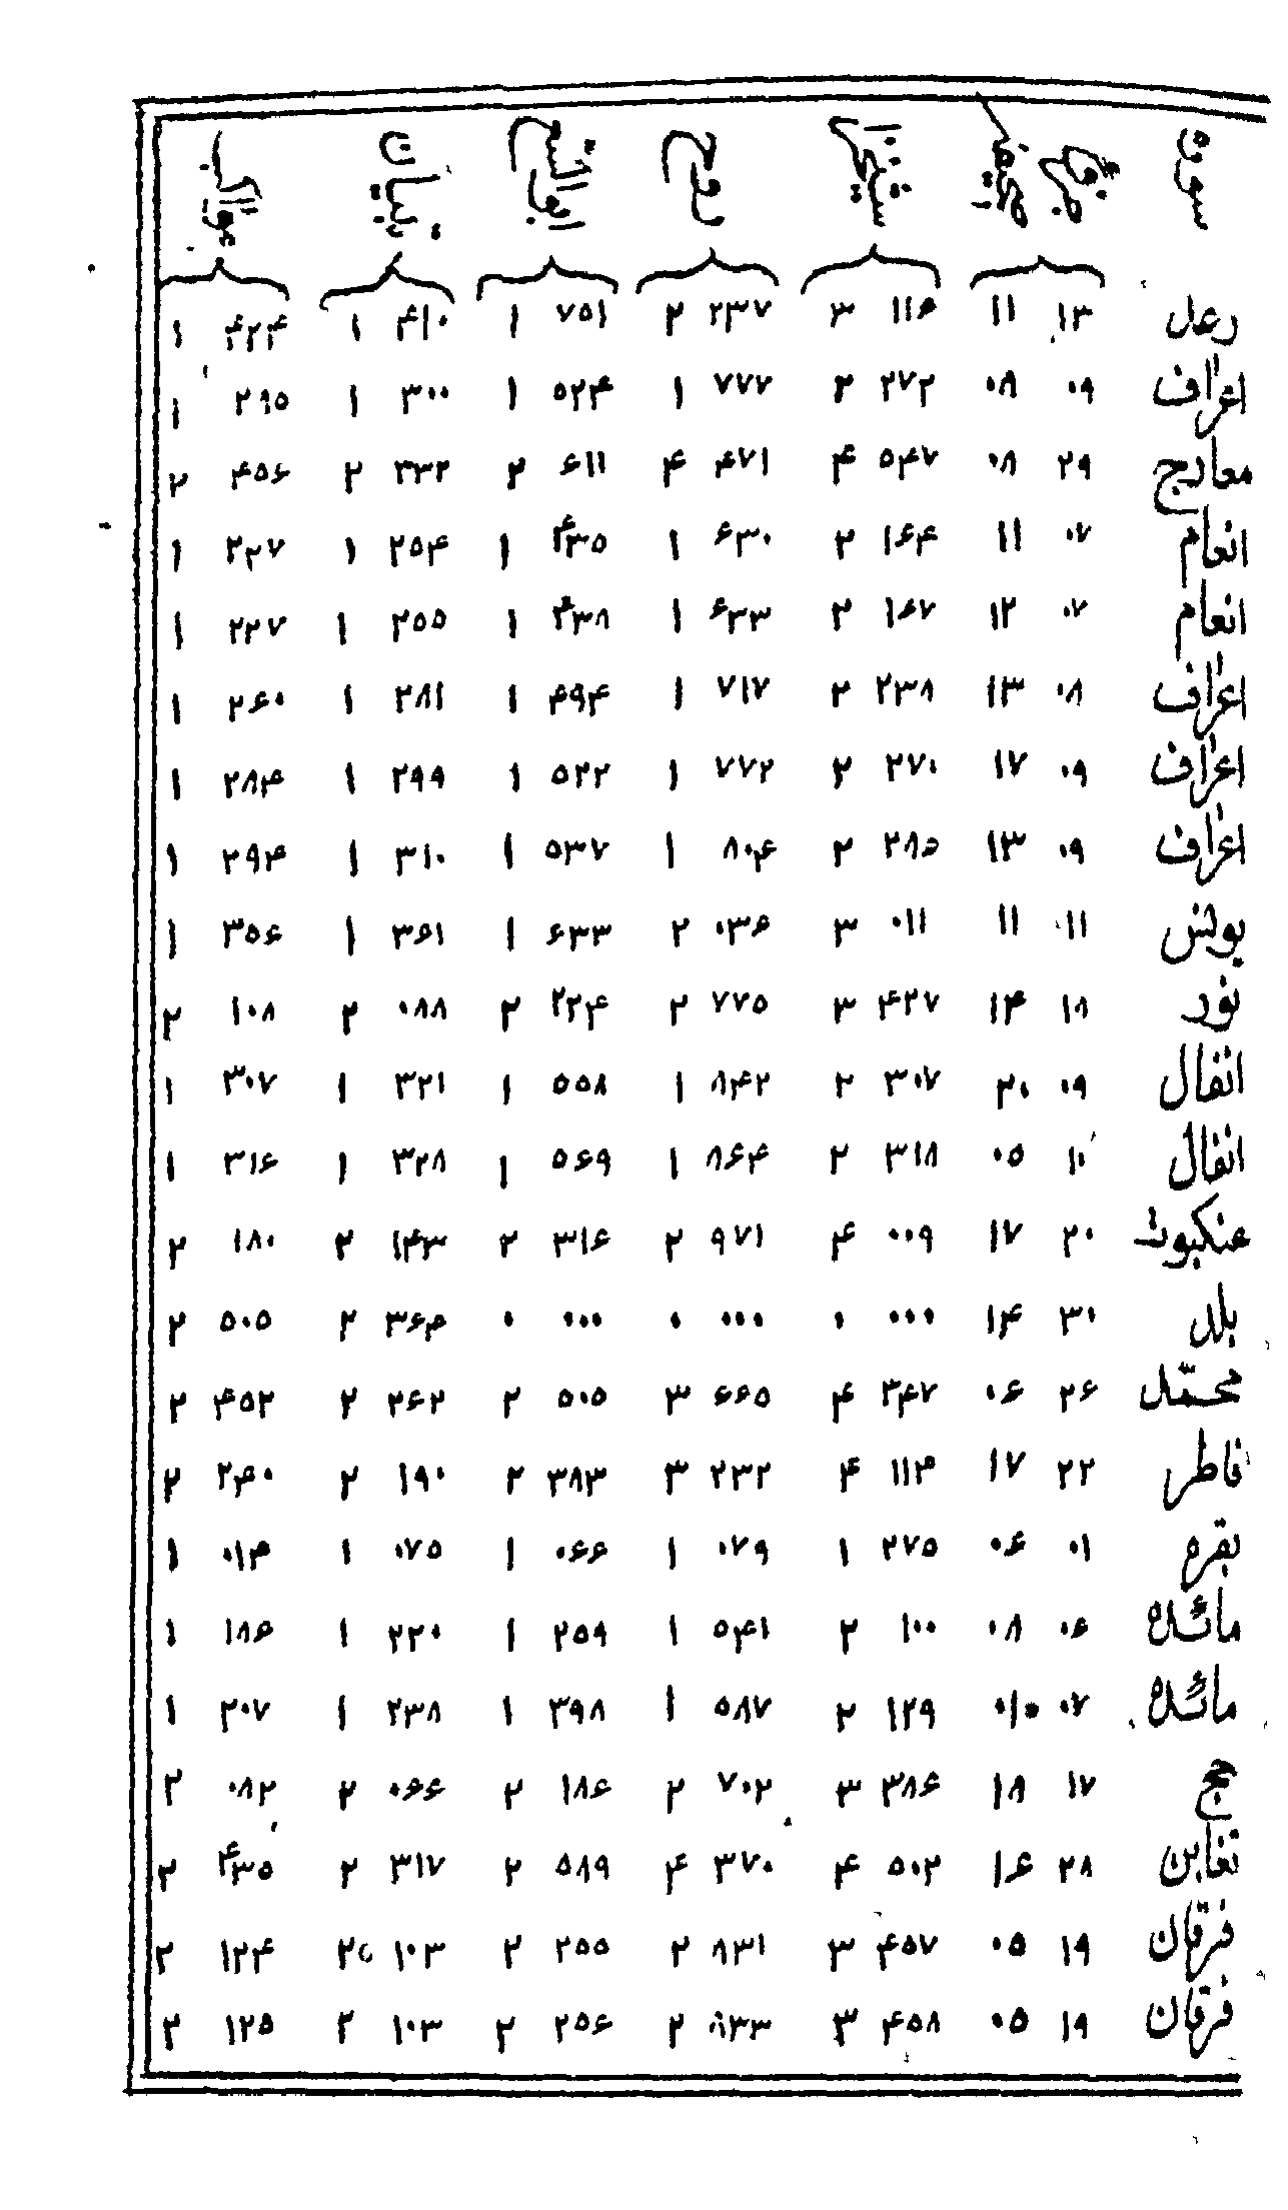 سوره
رعد ۱۳ ۱۱ ۱۱۶ ۳ ۲۳۷ ۲ ۷۵۱ ۱ ۴۱۰ ۱ ۴۲۴ ۱
اعراف ۰۹ ۰۸ ۲۷۲ ۲ ۷۷۷ ۱ ۵۲۴ ۱ ۳۰۰ ۱ ۲۹۵ ۱
معارج ۲۹ ۰۸ ۵۴۷ ۴ ۴۷۱ ۴ ۶۱۱ ۲ ۳۳۲ ۲ ۴۵۶ ۲
انعام ۰۷ ۱۱ ۱۶۴ ۲ ۶۳۰ ۱ ۴۳۵ ۱ ۲۵۴ ۱ ۲۲۷ ۱
انعام ۰۷ ۱۲ ۱۶۷ ۲ ۶۳۳ ۱ ۴۳۸ ۱ ۲۵۵ ۱ ۲۲۷ ۱
اعراف ۰۸ ۱۳ ۲۳۸ ۲ ۷۱۷ ۱ ۴۹۴ ۱ ۲۸۱ ۱ ۲۶۰ ۱
اعراف ۰۹ ۱۷ ۲۷۰ ۲ ۷۷۲ ۱ ۵۲۲ ۱ ۲۹۹ ۱ ۲۸۴ ۱
اعراف ۰۹ ۱۳ ۲۸۵ ۲ ۸۰۴ ۱ ۵۳۷ ۱ ۳۱۰ ۱ ۲۹۴ ۱
یونس ۱۱ ۱۱ ۰۱۱ ۳ ۰۳۶ ۲ ۶۳۳ ۱ ۳۶۱ ۱ ۳۵۶ ۱
نور ۱۸ ۱۴ ۴۲۷ ۳ ۷۷۵ ۲ ۲۲۴ ۲ ۰۸۸ ۲ ۱۰۸ ۲
انفال ۰۹ ۲۰ ۳۰۷ ۲ ۸۴۲ ۱ ۵۵۸ ۱ ۳۲۱ ۱ ۳۰۷ ۱
انفال ۱۰ ۰۵ ۳۱۸ ۲ ۸۶۴ ۱ ۵۶۹ ۱ ۳۲۸ ۱ ۳۱۶ ۱
عنکبوت ۲۰ ۱۷ ۰۰۹ ۴ ۹۷۱ ۲ ۳۱۶ ۲ ۱۴۳ ۲ ۱۸۰ ۲
بلد ۳۰ ۱۴ ۰۰۰ ۰ ۰۰۰ ۰ ۰۰۰ ۰ ۳۶۴ ۲ ۵۰۵ ۲
محمّد ۲۶ ۰۶ ۳۴۷ ۴ ۶۶۵ ۳ ۵۰۵ ۲ ۲۶۲ ۲ ۴۵۲ ۲
فاطر ۲۲ ۱۷ ۱۱۴ ۴ ۲۳۲ ۳ ۳۸۳ ۲ ۱۹۰ ۲ ۲۴۰ ۲
بقره ۰۱ ۰۶ ۲۷۵ ۱ ۰۷۹ ۱ ۰۶۶ ۱ ۰۷۵ ۱ ۰۱۴ ۱
مائده ۰۶ ۰۸ ۱۰۰ ۲ ۵۴۱ ۱ ۲۵۹ ۱ ۲۲۰ ۱ ۱۸۶ ۱
مائده ۰۷ ۰۱۰ ۱۲۹ ۲ ۵۸۷ ۱ ۳۹۸ ۱ ۲۳۸ ۱ ۲۰۷ ۱
حج ۱۷ ۱۸ ۳۸۶ ۳ ۷۰۲ ۲ ۱۸۶ ۲ ۰۶۶ ۲ ۰۸۲ ۲
تغابن ۲۸ ۱۶ ۵۰۲ ۴ ۳۷۰ ۴ ۵۸۹ ۲ ۳۱۷ ۲ ۴۳۵ ۲
فرقان ۱۹ ۰۵ ۴۵۷ ۳ ۸۳۱ ۲ ۲۵۵ ۲ ۱۰۳ ۲ ۱۲۴ ۲
فرقان ۱۹ ۰۵ ۴۵۸ ۳ ۸۳۳ ۲ ۲۵۶ ۲ ۱۰۳ ۲ ۱۲۵ ۲